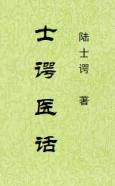 士谔医话
陆士谔 著